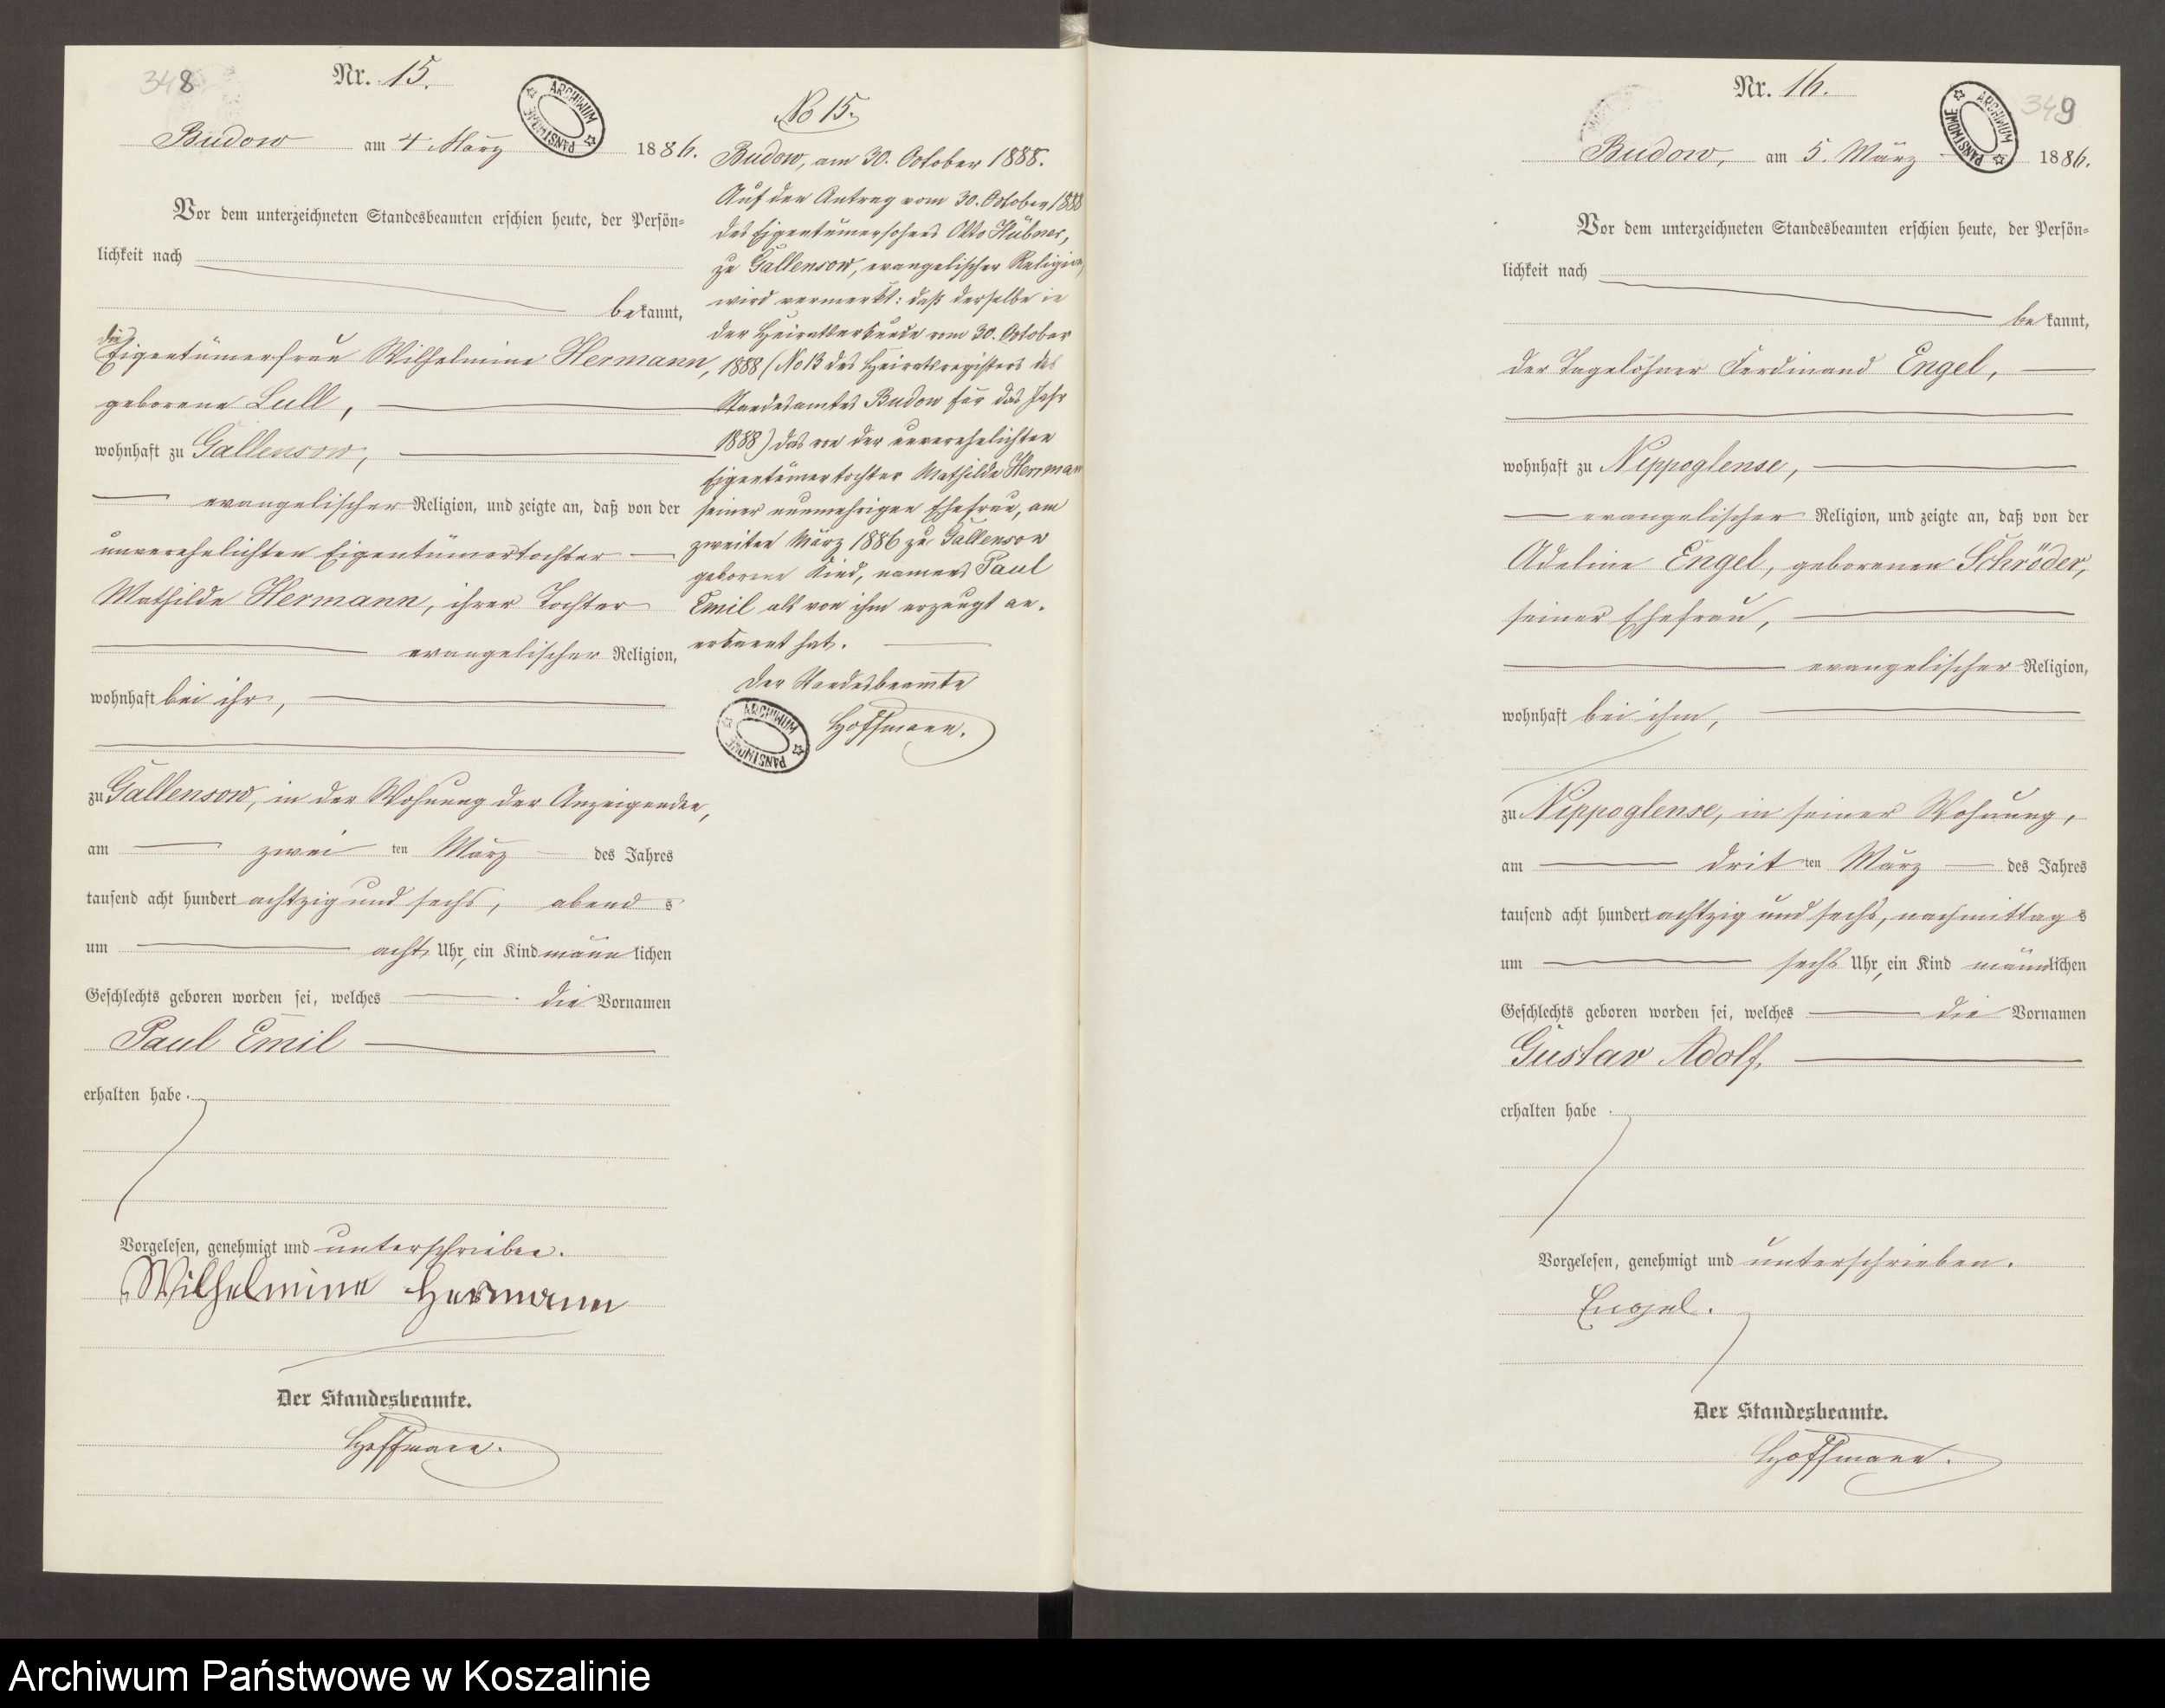 348
Nr. 15.
ARCHIWUM PAŃSTWOWE
Budow am 4 März 1886.
Vor dem unterzeichneten Standesbeamten erschien heute, der Persön=
lichkeit nach
bekannt,
die Eigentümerfrau Wilhelmine Hermann,
geborene Lull,
wohnhaft zu Gallensow,
evangelischer Religion, und zeigte an, daß von der
unverehelichten Eigentümertochter
Mathilde Hermann, ihrer Tochter
evangelischer Religion,
wohnhaft bei ihr,
zu Gallensow, in der Wohnung der Anzeigenden,
am zwei ten März des Jahres
tausend acht hundert achtzig und sechs, abends
um acht Uhr, ein Kind männlichen
Geschlechts geboren worden sei, welches die Vornamen
Paul Emil
erhalten habe.
Vorgelesen, genehmigt und unterschrieben.
Wilhelmine Hermann
Der Standesbeamte.
Hoffmann.
No 15.
Budow, am 30. October 1888.
Auf den Antrag vom 30. October 1888
des Eigentümersohnes Otto Hübner,
zu Gallensow, evangelischer Religion,
wird vermerkt: daß derselbe in
der Heiratsurkunde vom 30. October
1888 (No 13 des Heiratsregisters des
Standesamtes Budow für das Jahr
1888) das von der unverehelichten
Eigentümertochter Mathilde Herrmann
seiner nunmehrigen Ehefrau, am
zweiten März 1886 zu Gallensow
geborene Kind, namens Paul
Emil als von ihm erzeugt an=
erkannt hat.
Der Standesbeamte
Hoffmann.
ARCHIWUM PAŃSTWOWE
Nr. 16.
349
ARCHIWUM PAŃSTWOWE
Budow, am 5. März 1886.
Vor dem unterzeichneten Standesbeamten erschien heute, der Persön=
lichkeit nach
bekannt,
der Tagelöhner Ferdinand Engel,
wohnhaft zu Nippoglense,
evangelischer Religion, und zeigte an, daß von der
Adeline Engel, geborenen Schröder,
seiner Ehefrau,
evangelischer Religion,
wohnhaft bei ihm,
zu Nippoglense, in seiner Wohnung,
am drit ten März des Jahres
tausend acht hundert achtzig und sechs, nachmittags
um sechs Uhr, ein Kind männlichen
Geschlechts geboren worden sei, welches die Vornamen
Gustav Adolf,
erhalten habe.
Vorgelesen, genehmigt und unterschrieben.
Engel.
Der Standesbeamte.
Hoffmann.
Archiwum Państwowe w Koszalinie